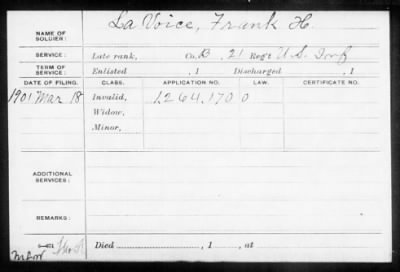 La Voice, Frank H.
NAME OF SOLDIER:
SERVICE: Late rank, Co. B, 21 Reg't U.S. Inf
TERM OF SERVICE: Enlisted , 1 Discharged , 1
DATE OF FILING. CLASS. APPLICATION NO. LAW. CERTIFICATE NO.
1901 Mar 18 Invalid, 1264,170 0
Widow,
Minor,
ADDITIONAL SERVICES:
REMARKS:
Died , 1 , at